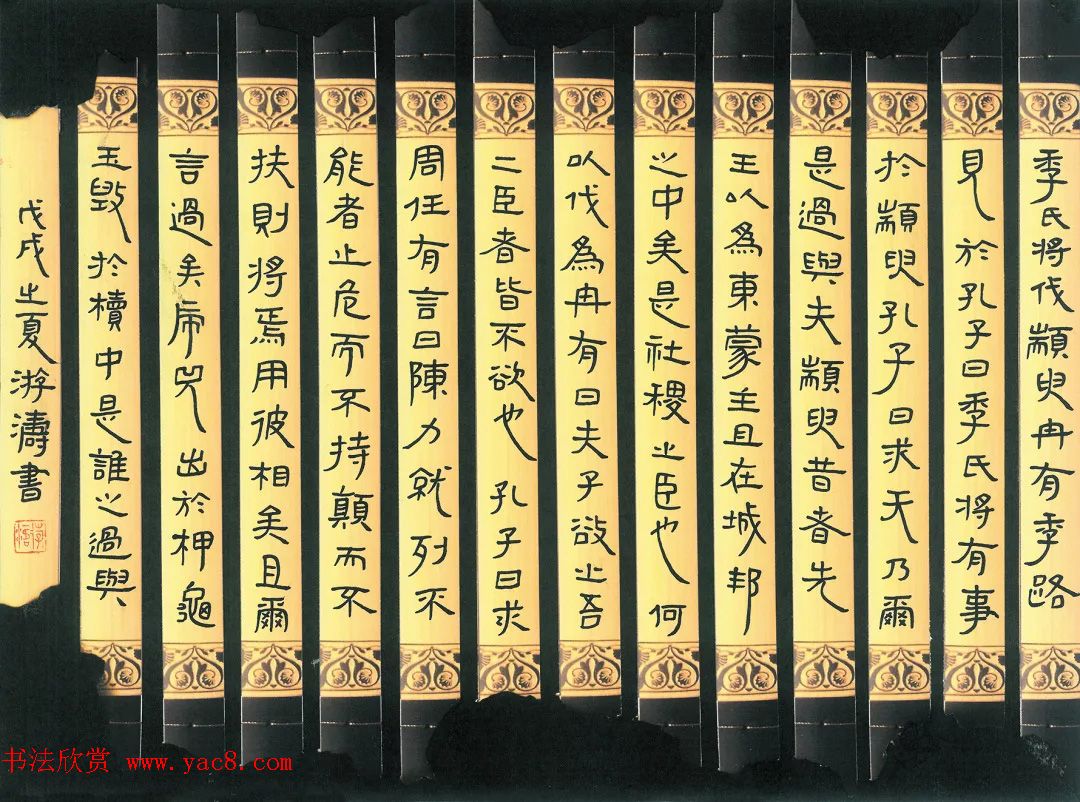 季氏將伐顓臾冉有季路
見於孔子曰季氏將有事
於顓臾孔子曰求无乃爾
是過與夫顓臾昔者先
王以爲東蒙主且在城邦
之中矣是社稷之臣也何
以伐爲冉有曰夫子欲之吾
二臣者皆不欲也孔子曰求
周任有言曰陳力就列不
能者止危而不持顛而不
扶則將焉用彼相矣且爾
言過矣虎兕出於柙龜
玉毀於櫝中是誰之過與
戊戌之夏游濤書
书法欣赏 www.yac8.com